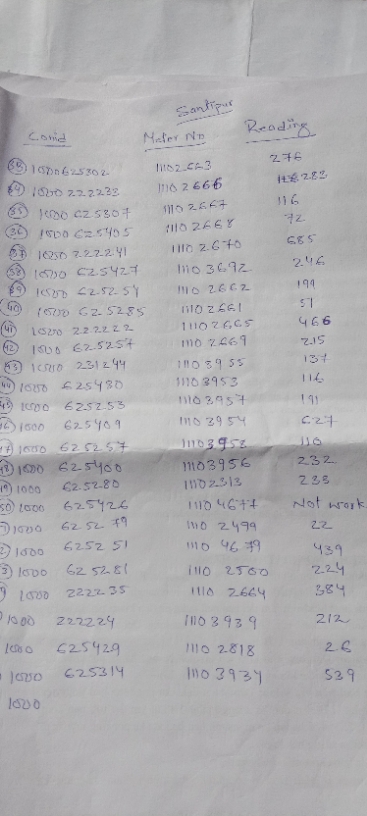 Santipur
Conid Meter No Reading
33 1000625302 11102663 276
34 1000 222233 11102666 283
35 1000 625307 11102667 116
36 1000 625405 11102668 72
37 1000 222241 11102670 685
38 1000 625427 11103692 246
39 1000 625254 11102662 199
40 1000 625285 11102661 51
41 1000 222222 11102665 466
42 1000 625257 11102669 215
43 1000 231244 11103955 137
44 1000 625430 11103953 116
45 1000 625253 11103957 191
46 1000 625409 11103954 627
47 1000 625257 11103958 110
48 1000 625400 11103956 232
49 1000 625280 11102313 233
50 1000 625426 11104677 Not work
1000 625279 11102499 22
1000 625251 11104679 439
1000 625281 11102500 224
1000 222235 11102664 384
1000 222224 11103939 212
1000 625429 11102818 26
1000 625314 11103934 539
1000